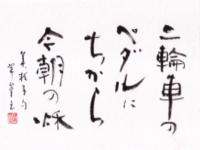 二輪車の
ペダルに
ちから
今朝の秋